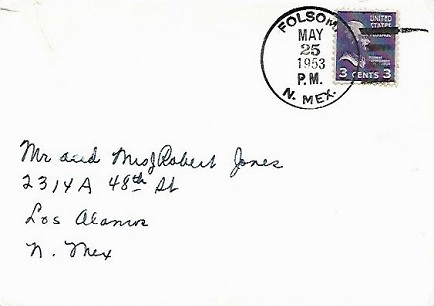 FOLSOM,
MAY
25
1953
P.M.
N. MEX.
UNITED
STATES
3 CENTS 3
Mr and Mrs Robert Jones
2314A 48th St
Los Alamos
N. Mex